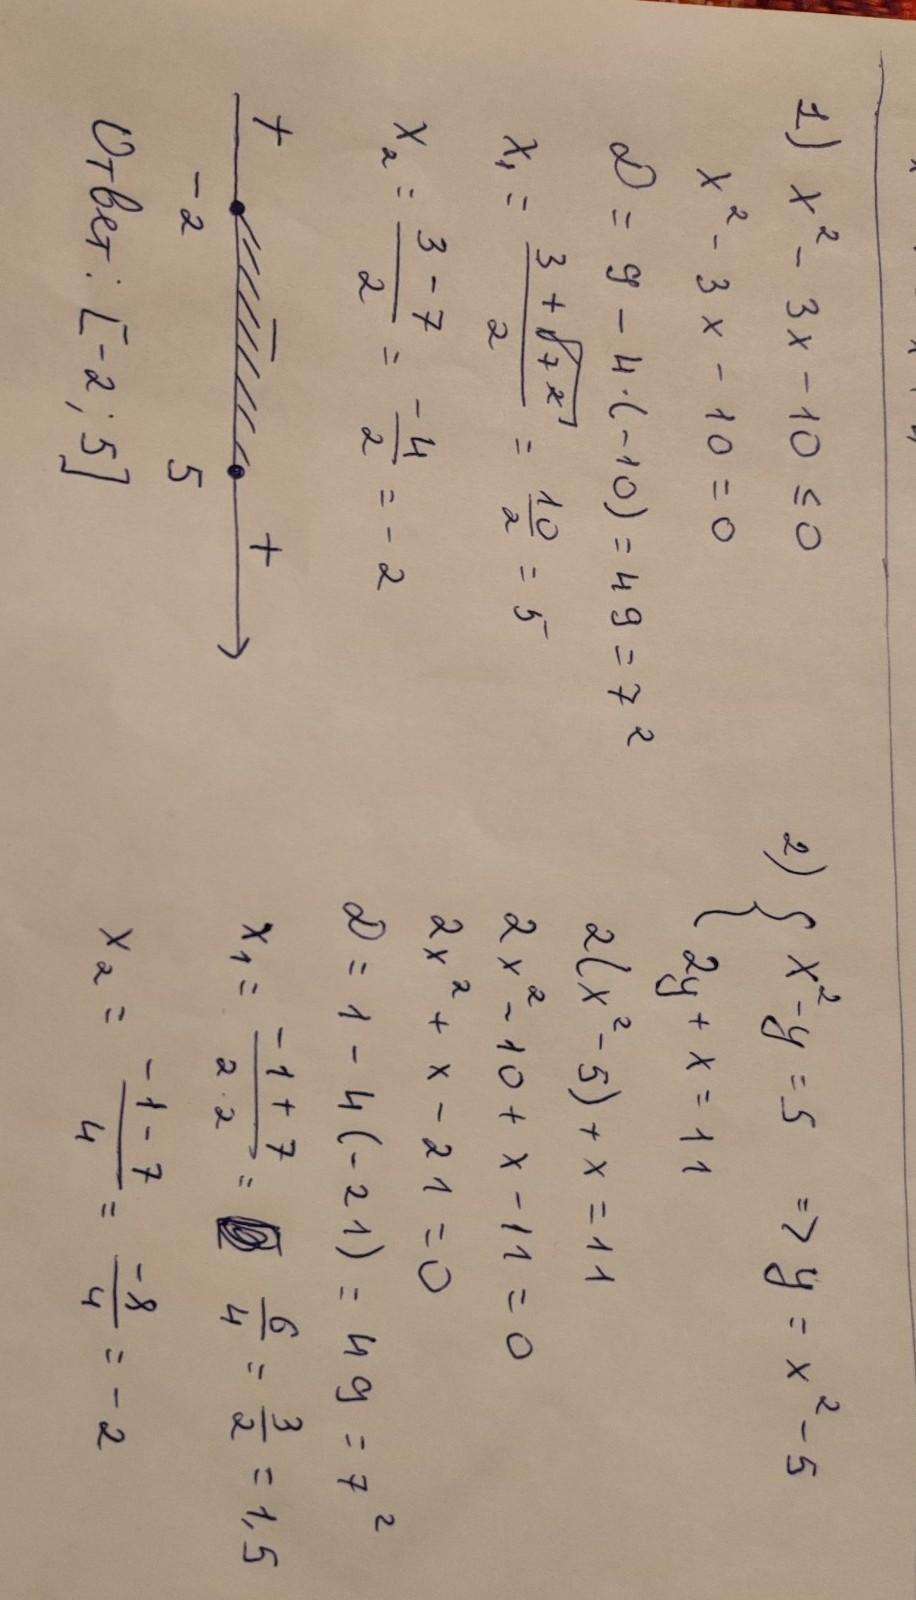 1) x² - 3x - 10 ≤ 0
x² - 3x - 10 = 0
D = 9 - 4·(-10) = 49 = 7²
x₁ = (3 + √7²)/2 = 10/2 = 5
x₂ = (3 - 7)/2 = -4/2 = -2
+ - +
-2 5
Ответ: [-2; 5]
2) { x² - y = 5 => y = x² - 5
{ 2y + x = 11
2(x² - 5) + x = 11
2x² - 10 + x - 11 = 0
2x² + x - 21 = 0
D = 1 - 4(-21) = 49 = 7²
x₁ = (-1 + 7)/(2·2) = 6/4 = 3/2 = 1,5
x₂ = (-1 - 7)/4 = -8/4 = -2